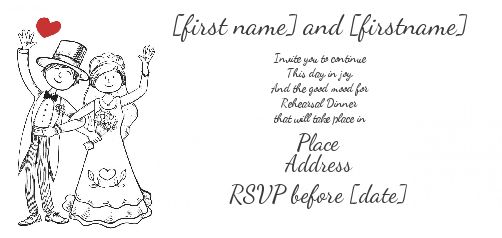 [first name] and [firstname]
Invite you to continue
This day in joy
And the good mood for
Rehearsal Dinner
that will take place in
Place
Address
RSVP before [date]